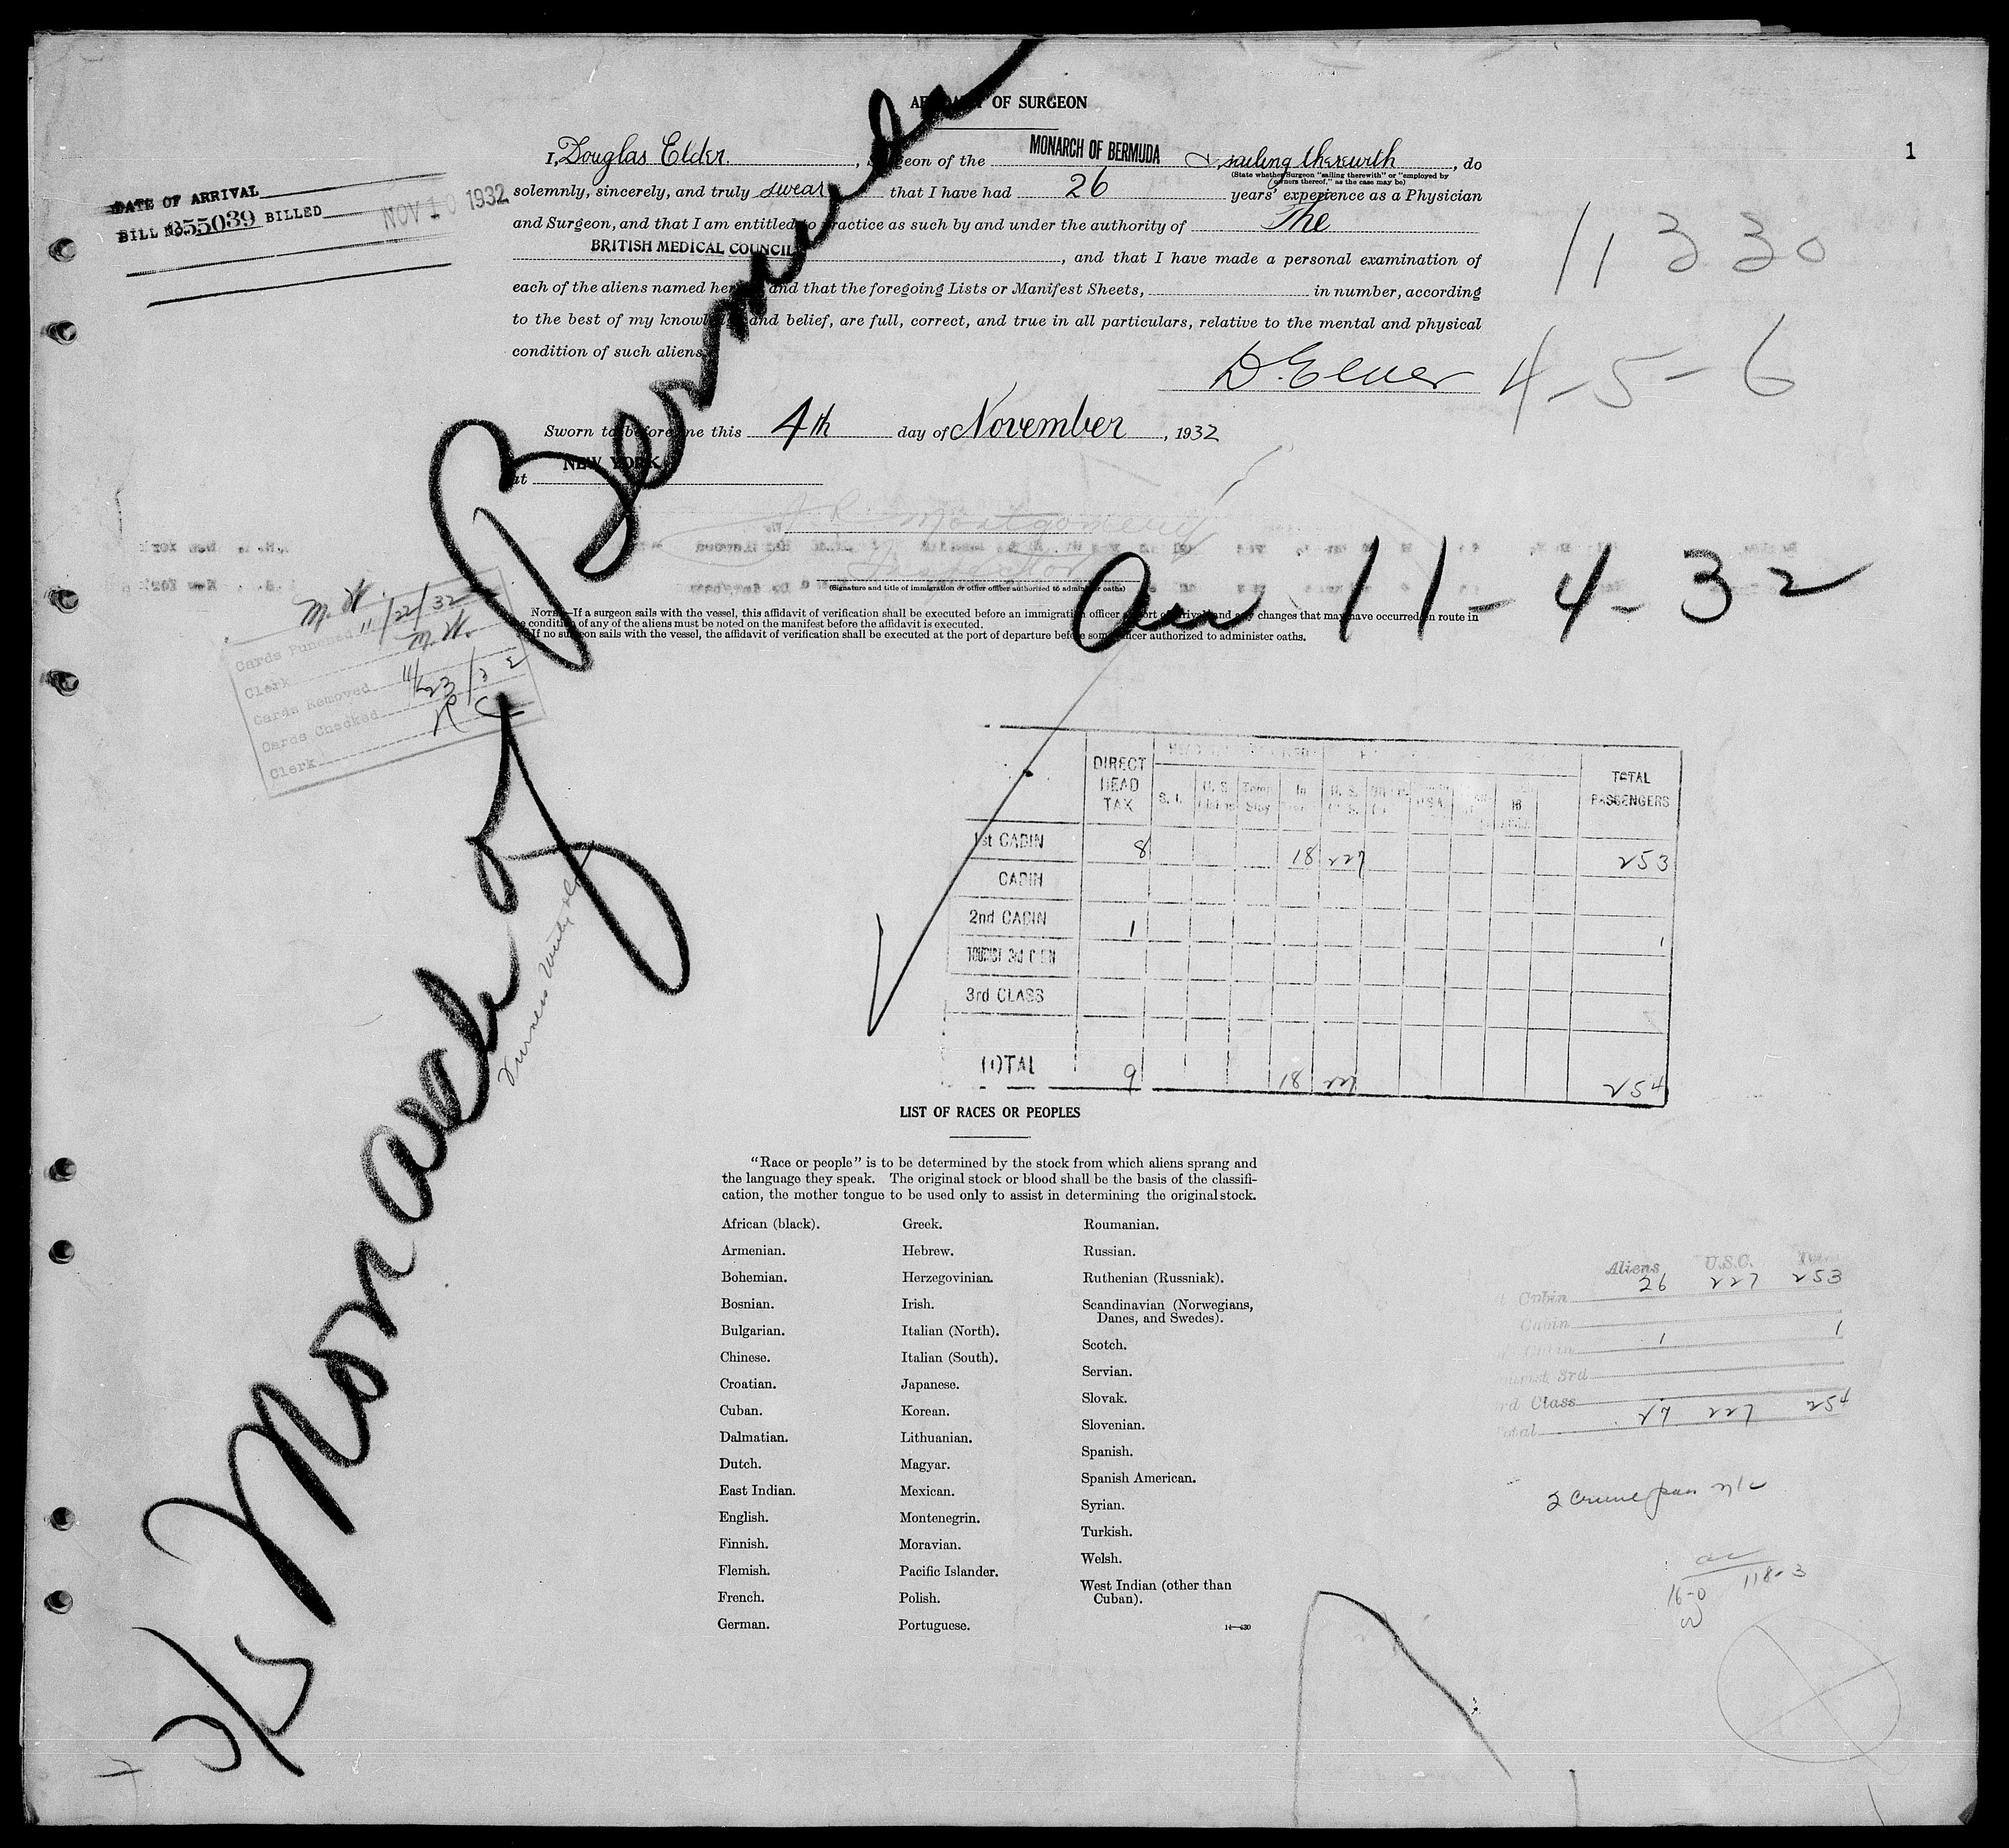 1
AFFIDAVIT OF SURGEON
I, Douglas Elder, Surgeon of the MONARCH OF BERMUDA sailing therewith, do
(State whether Surgeon "sailing therewith" or "employed by
owners thereof," as the case may be)
solemnly, sincerely, and truly swear that I have had 26 years' experience as a Physician
and Surgeon, and that I am entitled to practice as such by and under the authority of The
BRITISH MEDICAL COUNCIL, and that I have made a personal examination of
each of the aliens named herein, and that the foregoing Lists or Manifest Sheets, in number, according
to the best of my knowledge and belief, are full, correct, and true in all particulars, relative to the mental and physical
condition of such aliens.
D. Elder
Sworn to before me this 4th day of November, 1932
at NEW YORK
J. R. Montgomery
Inspector
(Signature and title of immigration or other officer authorized to administer oaths)
NOTE.—If a surgeon sails with the vessel, this affidavit of verification shall be executed before an immigration officer at port of arrival and any changes that may have occurred en route in
the condition of any of the aliens must be noted on the manifest before the affidavit is executed.
If no surgeon sails with the vessel, the affidavit of verification shall be executed at the port of departure before some officer authorized to administer oaths.
DATE OF ARRIVAL
BILL No. 355039 BILLED NOV 10 1932
11 330
4-5-6
S/S Monarch of Bermuda
Arr 11-4-32
M. W.
Cards Punched 11/22/32
Clerk M. W.
Cards Removed
Cards Checked 11/23/32
Clerk R C
DIRECT HEAD TAX S. I. U. S. Temp Stay In U. S. TOTAL PASSENGERS
1st CABIN 8 18 227 253
CABIN
2nd CABIN 1 1
TOURIST 3rd
3rd CLASS
TOTAL 9 18 227 254
LIST OF RACES OR PEOPLES
"Race or people" is to be determined by the stock from which aliens sprang and
the language they speak. The original stock or blood shall be the basis of the classifi-
cation, the mother tongue to be used only to assist in determining the original stock.
African (black).
Armenian.
Bohemian.
Bosnian.
Bulgarian.
Chinese.
Croatian.
Cuban.
Dalmatian.
Dutch.
East Indian.
English.
Finnish.
Flemish.
French.
German.
Greek.
Hebrew.
Herzegovinian.
Irish.
Italian (North).
Italian (South).
Japanese.
Korean.
Lithuanian.
Magyar.
Mexican.
Montenegrin.
Moravian.
Pacific Islander.
Polish.
Portuguese.
Roumanian.
Russian.
Ruthenian (Russniak).
Scandinavian (Norwegians,
Danes, and Swedes).
Scotch.
Servian.
Slovak.
Slovenian.
Spanish.
Spanish American.
Syrian.
Turkish.
Welsh.
West Indian (other than
Cuban).
14—430
Aliens U.S.C.
Cabin 26 227 253
Cabin
1 1
3rd
Class
Total 27 227 254
16-0 118-3